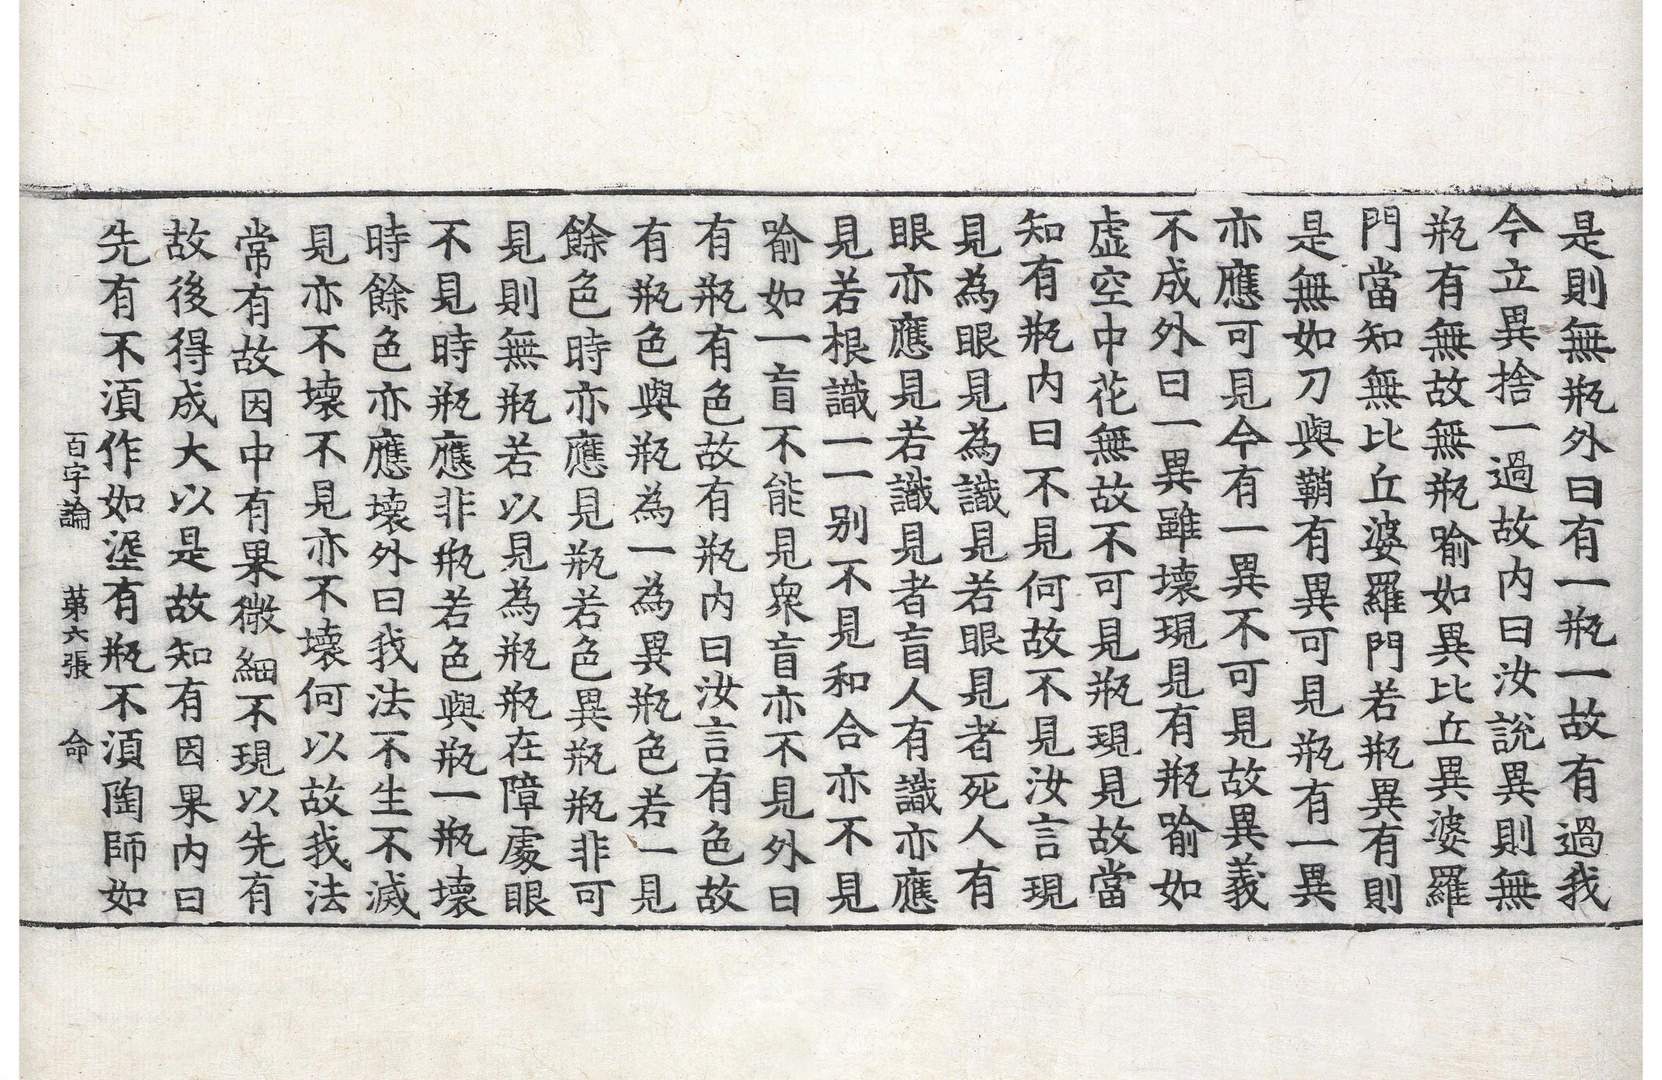 是則無瓶外曰有一瓶一故有過我
今立異捨一過故内曰汝說異則無
瓶有無故無瓶喻如異比丘異婆羅
門當知無比丘婆羅門若瓶異有則
是無如刀與鞘有異可見瓶有一異
亦應可見今有一異不可見故異義
不成外曰一異雖壞現見有瓶喻如
虛空中花無故不可見瓶現見故當
知有瓶内曰不見何故不見汝言現
見為眼見為識見若眼見者死人有
眼亦應見若識見者盲人有識亦應
見若根識一一別不見和合亦不見
喻如一盲不能見衆盲亦不見外曰
有瓶有色故有瓶内曰汝言有色故
有瓶色與瓶為一為異瓶色若一見
餘色時亦應見瓶若色異瓶瓶非可
見則無瓶若以見為瓶瓶在障處眼
不見時瓶應非瓶若色與瓶一瓶壞
時餘色亦應壞外曰我法不生不滅
見亦不壞不見亦不壞何以故我法
常有故因中有果微細不現以先有
故後得成大以是故知有因果内曰
先有不湏作如埿有瓶不湏陶師如
百字論 第六張 命